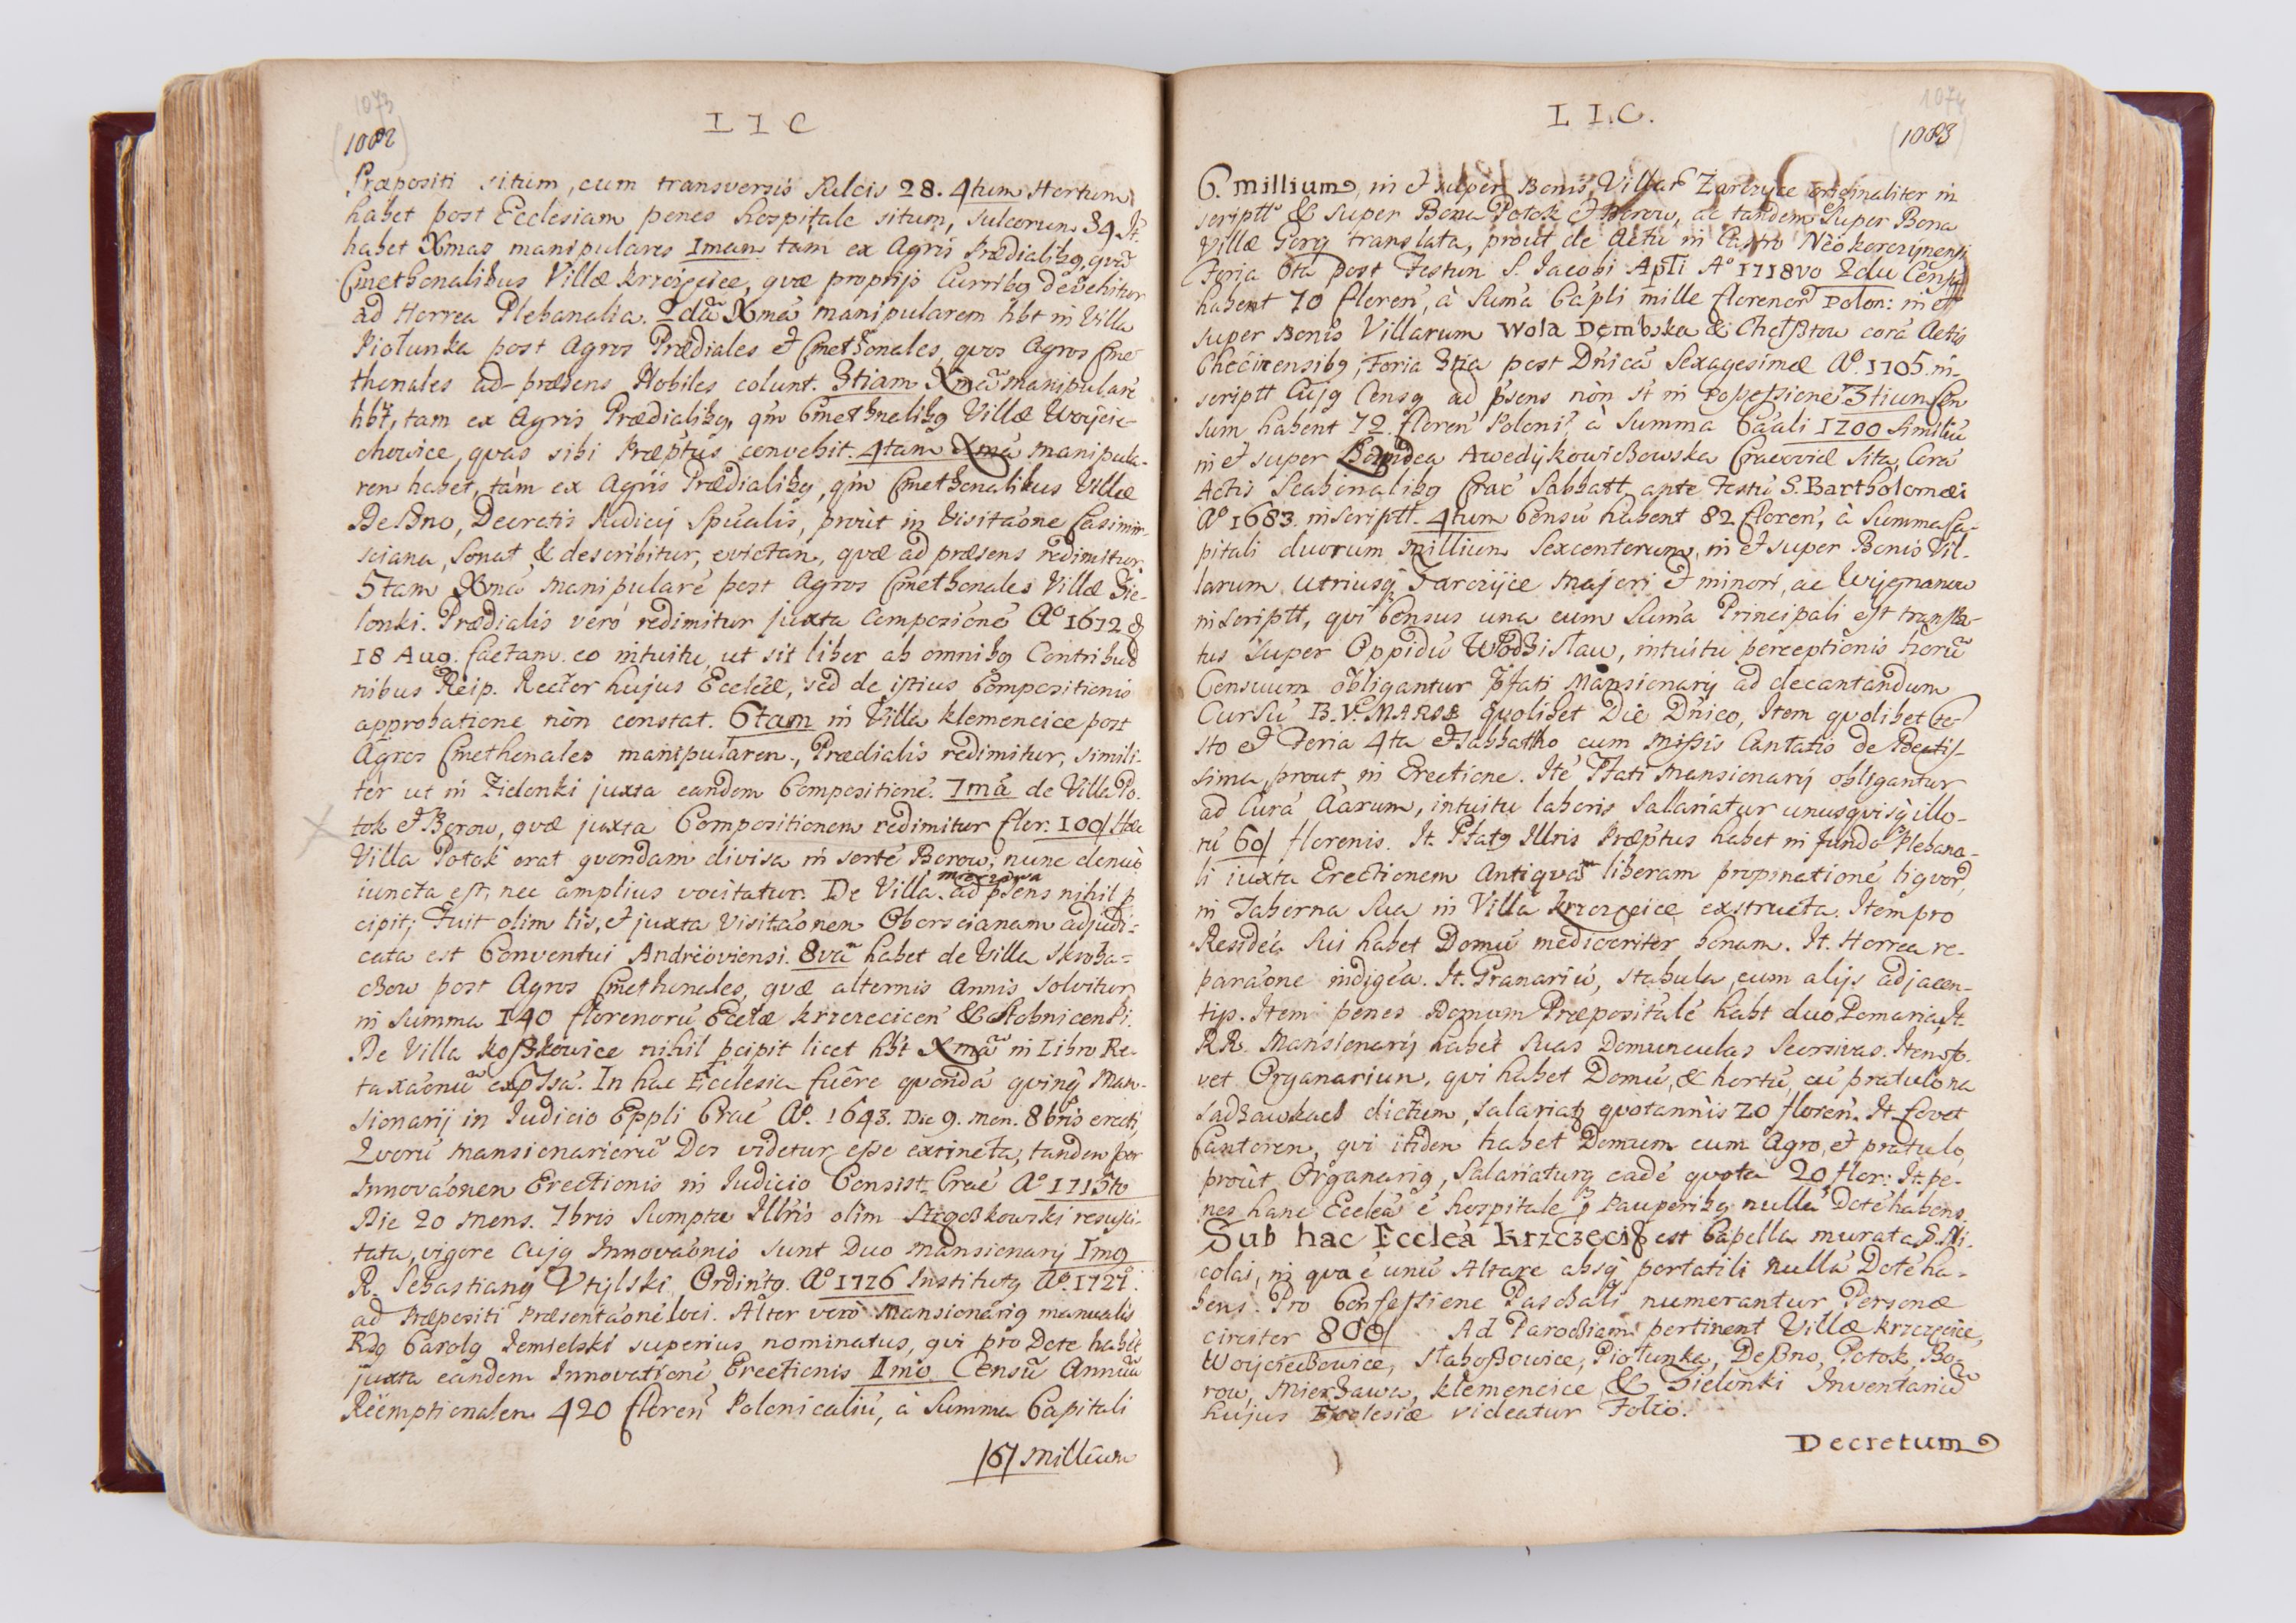 1073
1002
I I C
Præpositi situm, cum transversis Sulcis 28. 4tum Hortum
habet post Ecclesiam penes hospitale situm, sulcorum 34 It.
habet Xmas manipulares Imam tam ex Agris Prædialibq, qua
Cmethonalibus Villæ krzcięcice, quæ proprijs Curribq devehitur
ad Horrea Plebanalia. 2dã Xmá manipularem hbt in Villa
Piolunka post Agros Prædiales et Cmethonales, quos Agros Cme-
thonales ad præsens Nobiles colunt. 3tiam Xmã manipularé
hbt, tam ex Agris Prædialibq, qm Cmethnalibq Villæ Woycie-
chowice, quas sibi Præptus convehit. 4tam Xmá manipula-
rem habet, tám ex Agris Prædialibq, qm Cmethonalibus Villæ
Deszno, Decretis Judicij Spualis, prout in Visitaone Casimir-
sciana, sonat & describitur, evictam, quæ ad præsens redimitur.
5tam Xmá manipularé post Agros Cmethonales Villæ Zie-
lonki. Prædialis veró redimitur juxta Composicioné Aº 1672 d
18 Aug. factam eo intuitu, ut sit liber ab omnibq Contribuo
nibus Reip. Rector hujus Ecclæ, sed de istius Compositionis
approbatione nòn constat. 6tam in Villa klemencice post
Agros Cmethonales manipularem, Prædialis redimitur, simili-
tér ut in Zielonki juxta eandem Compositioné. 7má de Villa Po-
tok et Borow, quæ juxta Compositionem redimitur flor: 100/ Hæc
Villa Potok erat quondam divisa in sorté Borow, nunc denuò
iuncta est, nec amplius vocitatur. De Villa mierzawa ad psens nihil p
cipit; Fuit olim lis, et juxta Visitaonem Oborscianam adjudi-
cata est Conventui Andreoviensi. 8vã habet de Villa Skroba-
chow post Agros Cmethonales, quæ alternis Annis solvitur
in summa 140 florenorú Eccłæ krzczecicen &
De Villa koszkowice nihil pcipit licet hbt Xmã in Libro Re-
taxaonũ expssá. In hac Ecclesia fuêre quondá quinq Man-
sionarij in Judicio Eppli Crac Aº. 1643. Die 9. Men. 8bris erecti,
Quorú mansionariorũ Dos videtur esse extincta, tandem per
Innovaonem Erectionis in Judicio Consist. Crac Aº 1715to
Die 20 Mens. 7bris Sumptu Illris olim Strzeszkowski resusci-
tata, vigore cujq Innovaonis sunt Duo Mansionarij Imq
R. Sebastianq Utylski Ordintq. Aº 1726 Institutq Aº. 1727.
ad Præpositi Præsentaoné loci. Alter veró Mansionariq manualis
Rdq Carolq Jemielski superius nominatus, qui pro Dote habét
juxta eandem Innovationé Erectionis Imo Censũ Annuũ
Réémptionalem 420 floren Polonicaliú, à Summa Capitali
/6/ Millium
1074
1003
I I. C.
6. Millium, in et super Bonis Villar Zarczyce originaliter in
scriptt & super Bona Potok et Borow, ac tandem Super Bona
Villæ Gory translata, prout de Actu in Castro Neokorczynensi
Feria 6ta post Festum S. Jacobi Apli Aº 1718vo 2du Censu
habent 70 floren, à Sumá Capli mille florenor Polon: in et
super Bonis Villarum Wola Dembska & Chelsztow corá Actis
Chécinensibq, Feria 3tia post Dnicã Sexagesimæ Aº. 1705. in-
scriptt Cujq Censq ad psens nòn st in possessione 3tium Cen
sum habent 72 floren Poloni? à Summa Caali 1200 similiú
in et super Domo Awedykowichowska Cracoviæ sita, Corá
Actis Scabinalibq Crac Sabbatt ante Festú S. Bartholomæi
Aº 1683. inscriptt. 4tum Censú habent 82 floren, à Summa Ca-
pitali duorum Millium Sexcentorum, in et super Bonis Vil-
larum utriusq Tarczyce Majori et minori, ac Wygnanow
inscriptt, qui Census una cum Sumá Principali est transla-
tus super Oppidú Wodzisław, intuitu perceptionis horũ
Censuum obligantur Pfati Mansionarij ad decantandum
Cursú B. V. MARIÆ quolibet Die Dnico, Item quolibet Fe-
sto et Feria 4ta et Sabbatho cum Missis Cantatis de Beatis-
sima, prout in Erectione. Ité Pfati Mansionarij obligantur
ad Curá Aarum, intuitu laboris Sallariatur unusquisq illo-
rú 60/ florenis. It. Pfatq Illris Præptus habet in fundo Plebana-
li iuxta Erectionem Antiquam liberam propinationé liquor,
in Taberna sua in Villa krzczęcice exstructa. Item pro
Residéa sui habet Domú mediocriter bonam. It. Horrea re-
paraone indigéa. It. Granariú, stabula, cum alijs adjacen-
tijs. Item penes Domum Præpositalé habt duo Pomaria. It.
RR. Mansionarij habét suas Domunculas Seorsivas. Item fo-
vet Organarium, qui habet Domú, & hortú, cú pratulo na
Sadzawkach dictum, salariatq quotannis 20 floren. It. fovet
Cantorem, qui itidem habet Domum cum Agro, et pratulo,
proút Organariq, Salariaturq eadé quota 20 flor: It. pe-
nes hanc Eccleá é hospitale p Pauperibq nullá Doté habens
Sub hac Eccleá krzczęciȷ̃ est Capella murata S. Ni-
colai, in qua é unú Altare absq portatili nullá Doté ha-
bens. Pro Confessione Paschali numerantur Personæ
circiter 800/ Ad Parochiam pertinent Villæ krzczęcice,
Woyciechowice, Staboszowice, Piołunka, Deszno, Potok, Bo-
row, Mierzawa, klemencice & Zielonki Inventariũ
hujus Ecclesiæ videatur Folio.
Decretum